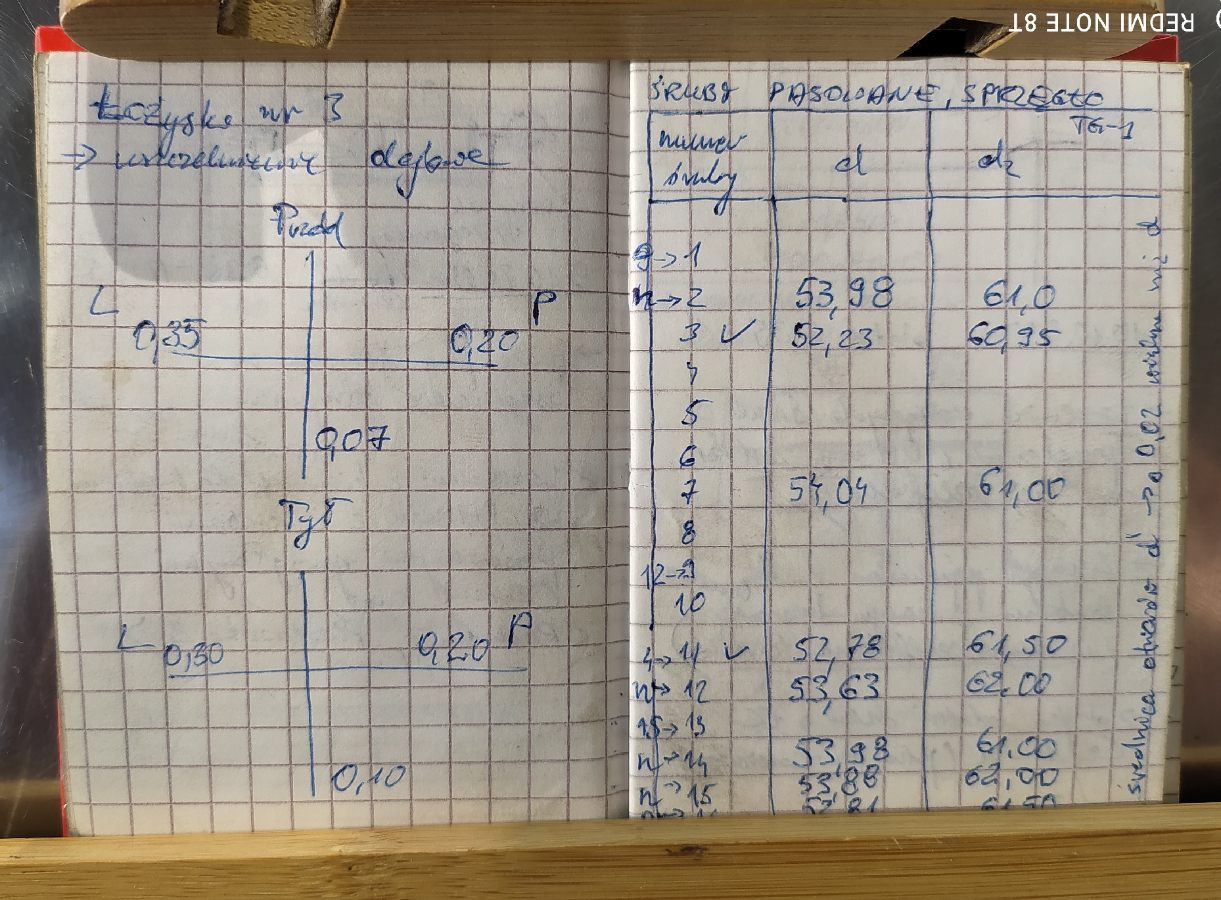 REDMI NOTE 8T
Łożysko nr 3
→ uszczelnienie olejowe
Przód
L
P
0,35
0,20
0,07
Tył
L
P
0,30
0,20
0,10
ŚRUBY PASOWANE, SPRZĘGŁO
TG-1
numer śruby
d
dz
9→1
n→2 53,98 61,0
3 ✓ 52,23 60,95
4
5
6
7 54,04 61,00
8
12→9
10
4→11 ✓ 52,78 61,50
n→12 53,63 62,00
15→13
n→14 53,98 61,00
n→15 53,88 62,00
średnica otworu d' → o 0,02 niż d